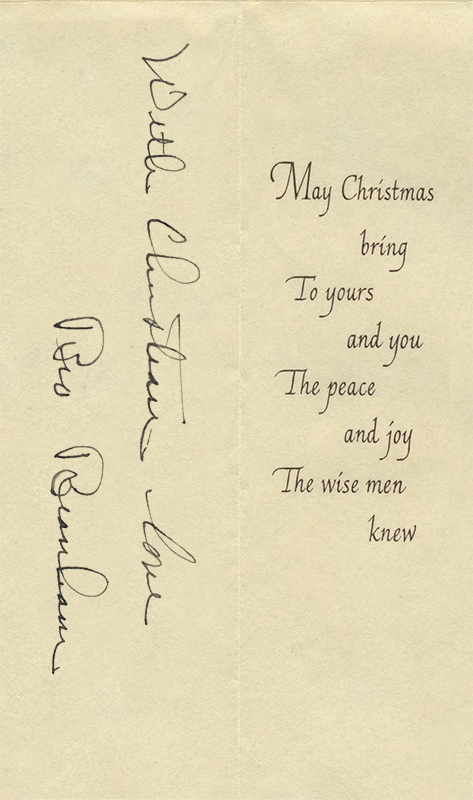 With Christian Love
Bro Branham
May Christmas
bring
To yours
and you
The peace
and joy
The wise men
knew